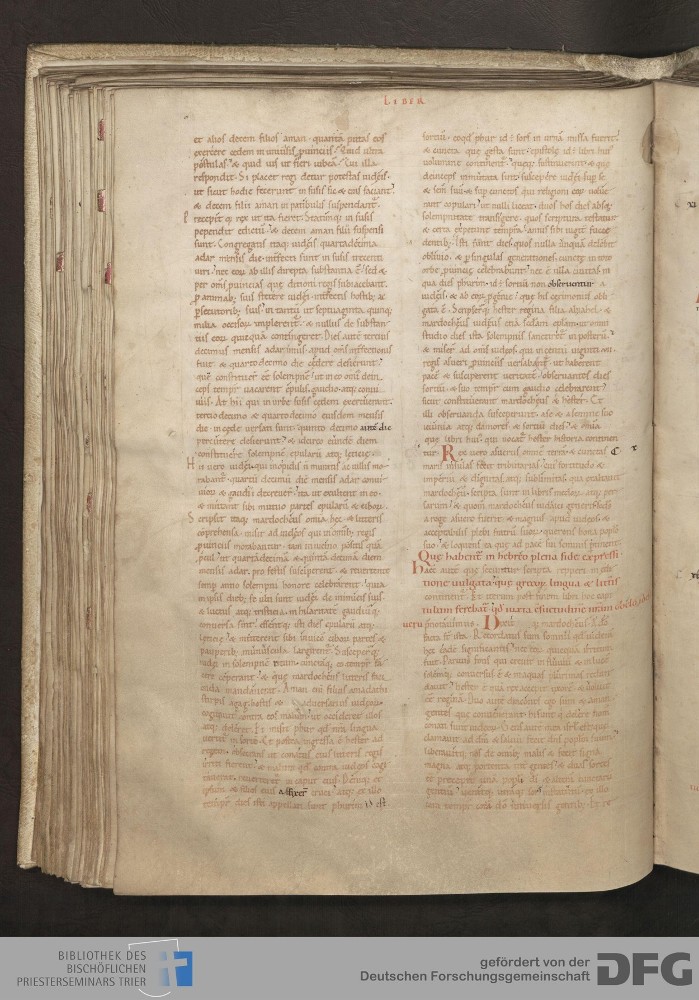 LIBER
et alios decem filios aman. quantā putas eos
exercere cedem in uniuersis puinciis? Quid ultra
postulas? & quid uis ut fieri iubeā? Cui illa
respondit. Si placet regi detur potestas iudeis.
ut sicut hodie fecerunt in susis sic & cras faciant
& decem filii aman in patibulis suspendant
p̄cepitq; rex ut ita fieret. Statimq; in susis
pependit edictū. & decem aman filii suspensi
sunt. Congregatis itaq; iudeis quartadecima
adar mensis die. interfecti sunt in susis trecenti
uiri. nec eorū ab illis direpta substantia ē. Sed &
per omīs puincias que ditioni regis subiacebant
p animab; suis stetere iudei. interfectis hostib; ac
psecutorib; suis. in tantū ut septuaginta quinq;
milia occisorū implerent. & nullus de substan
tiis eorū quicquā contingeret. Dies autē tercius
decimus mensis adar
fuit. & quartodecimo die cedere desierunt.
que constituerunt ē solempnē. ut in eo omī dein
ceps tempore uacarent epulis gaudio atq; conui
uiis. At hii qui in urbe susis cedem exercuerunt.
tertiodecimo & quartodecimo eiusdem mensis
die in cede uersati sunt. quinto decimo autē die
percutere desierunt. & idcirco eundē diem
constituerē solempnē epularū atq; leticie.
Hii uero iudei qui in opidis
rabant. quartū decimū diē mensis adar conui
uiorū & gaudii decreuerunt. ita ut exultent in eo.
& mittant sibi mutuo partes epularū & ciborū.
Scripsit itaq; mardocheus omia hec. & litteris
cōprehensa misit ad iudeos qui in omīb; regis
puinciis morabantur. tam in uicino positis quā
pcul. ut quartadecimā & quintā decimā diem
mensis adar. pro festis susciperent. & reuertente
semp anno solempni honore celebrarent. quia
in ipsis dieb; se ulti sunt iudei de inimicis suis.
& luctus atq; tristitia in hilaritatē gaudiūq;
conuersa sint. essentq; isti dies epularū atq;
leticie. & mitterent sibi inuicē ciborū partes &
pauperib; munuscula largirent. Susceperuntq;
iudei in solempnē ritum cuncta que eo tempore fa
cere ceperant. & que mardocheus litteris faci
enda mandauerat. Aman enī filius amadathi
stirpis agag. hostis & aduersarius iudeorū
cogitauit contra eos malum ut occideret illos
atq; deleret. Et misit phur qd nra lingua
uertit in sortē. Et postea ingressa ē hester ad
regem. obsecrans ut conatus eius litteris regis
irriti fierent. & malū qd contra iudeos cogi
tauerat. reuerteret in caput eius. Deniq; et
ipsum & filios eius affixerunt cruci. atq; ex illo
tempore dies isti appellati sunt phurim. id est
sortiū. eo qd phur id ē sors in urnā missa fuerit.
& cuncta que gesta sunt. epistole id ē libri huius
uolumine continent. queq; sustinuerunt. & que
deinceps inmutata sunt. suscepere iudei sup se
& semen suū. & sup cunctos qui religioni eorū uolue
runt copulari. ut nulli liceat duos hos dies absq;
solempnitate transigere. quos scriptura testatur
& certa expetunt tempora. annis sibi iugiter succe
dentib; Isti sunt dies quos nulla unquā delebit
obliuio. & p singulas generationes cuncte in toto
orbe puincie celebrabunt. nec ē ulla ciuitas in
qua dies phurim id ē sortiū non obseruentur a
iudeis. & ab eorū pgenie que his cerimoniis obli
gata ē. Scripseruntq; hester regina filia abiahel. &
mardocheus iudeus etiā secdam eplam. ut omni
studio dies ista solempnis sanciretur in posterū.
& miserunt ad omīs iudeos qui in centū uiginti septē
regis assueri puinciis uersabantur. ut haberent
pacē. & susciperent ueritatē. obseruantes dies
sortiū. & suo tempore cum gaudio celebrarent.
sicut constituerant mardocheus & hester. Et
illi obseruanda susceperunt a se & a semine suo
ieiunia atq; clamores & sortiū dies. & omia
que libri huius qui uocatur hester historia continen
tur. Rex uero asuerus omnē terrā & cunctas C x
maris insulas fecit tributarias. cui fortitudo &
imperiū & dignitas atq; sublimitas qua exaltauit
mardocheū. scripta sunt in libris medorū atq; per
sarum. & quom mardocheus iudaici generis secds
a rege asuero fuerit. & magnus apud iudeos. &
acceptabilis plebi fratrū suorū. querens bona poplo
suo. & loquens ea que ad pacē sui seminis ptinerent.
Que habent in hebreo plena fide expressi.
Hec autē que secuntur scripta repperi in edi
tione uulgata que grecorū lingua & litteris
continent. Et iterum post finem libri hoc capi
tulum ferebat. qd iuxta csuetudinē nram obelo id est
ueru pnotauimus. Dixitq; mardocheus. A do
facta sunt ista. Recordatus sum somnii qd uideram
hec eadē significantis. nec eorū quicquā irritum
fuit. Paruus fons qui creuit in fluuiū. & in lucē
solemq; conuersus ē. & in aquas plurimas redun
dauit. hester ē quā rex accepit uxorē. & uoluit
eē reginā. Duo autē dracones. ego sum & aman.
gentes que conuenerant. hi sunt qui delere nom
conati sunt iudeorū. Gens autē mea isrl est. que
clamauit ad dnm. & saluū fecit dns poplm suum.
liberauitq; nos de omib; malis. & fecit signa
magna atq; portenta int gentes. & duas sortes
eē precepit. unā popli di & alterā cunctarū
gentiū. uenitq; utraq; sors in statutum ex illo
iam tempore diē coram do uniuersis gentib;. Et re
BIBLIOTHEK DES
BISCHÖFLICHEN
PRIESTERSEMINARS TRIER
gefördert von der
Deutschen Forschungsgemeinschaft
DFG